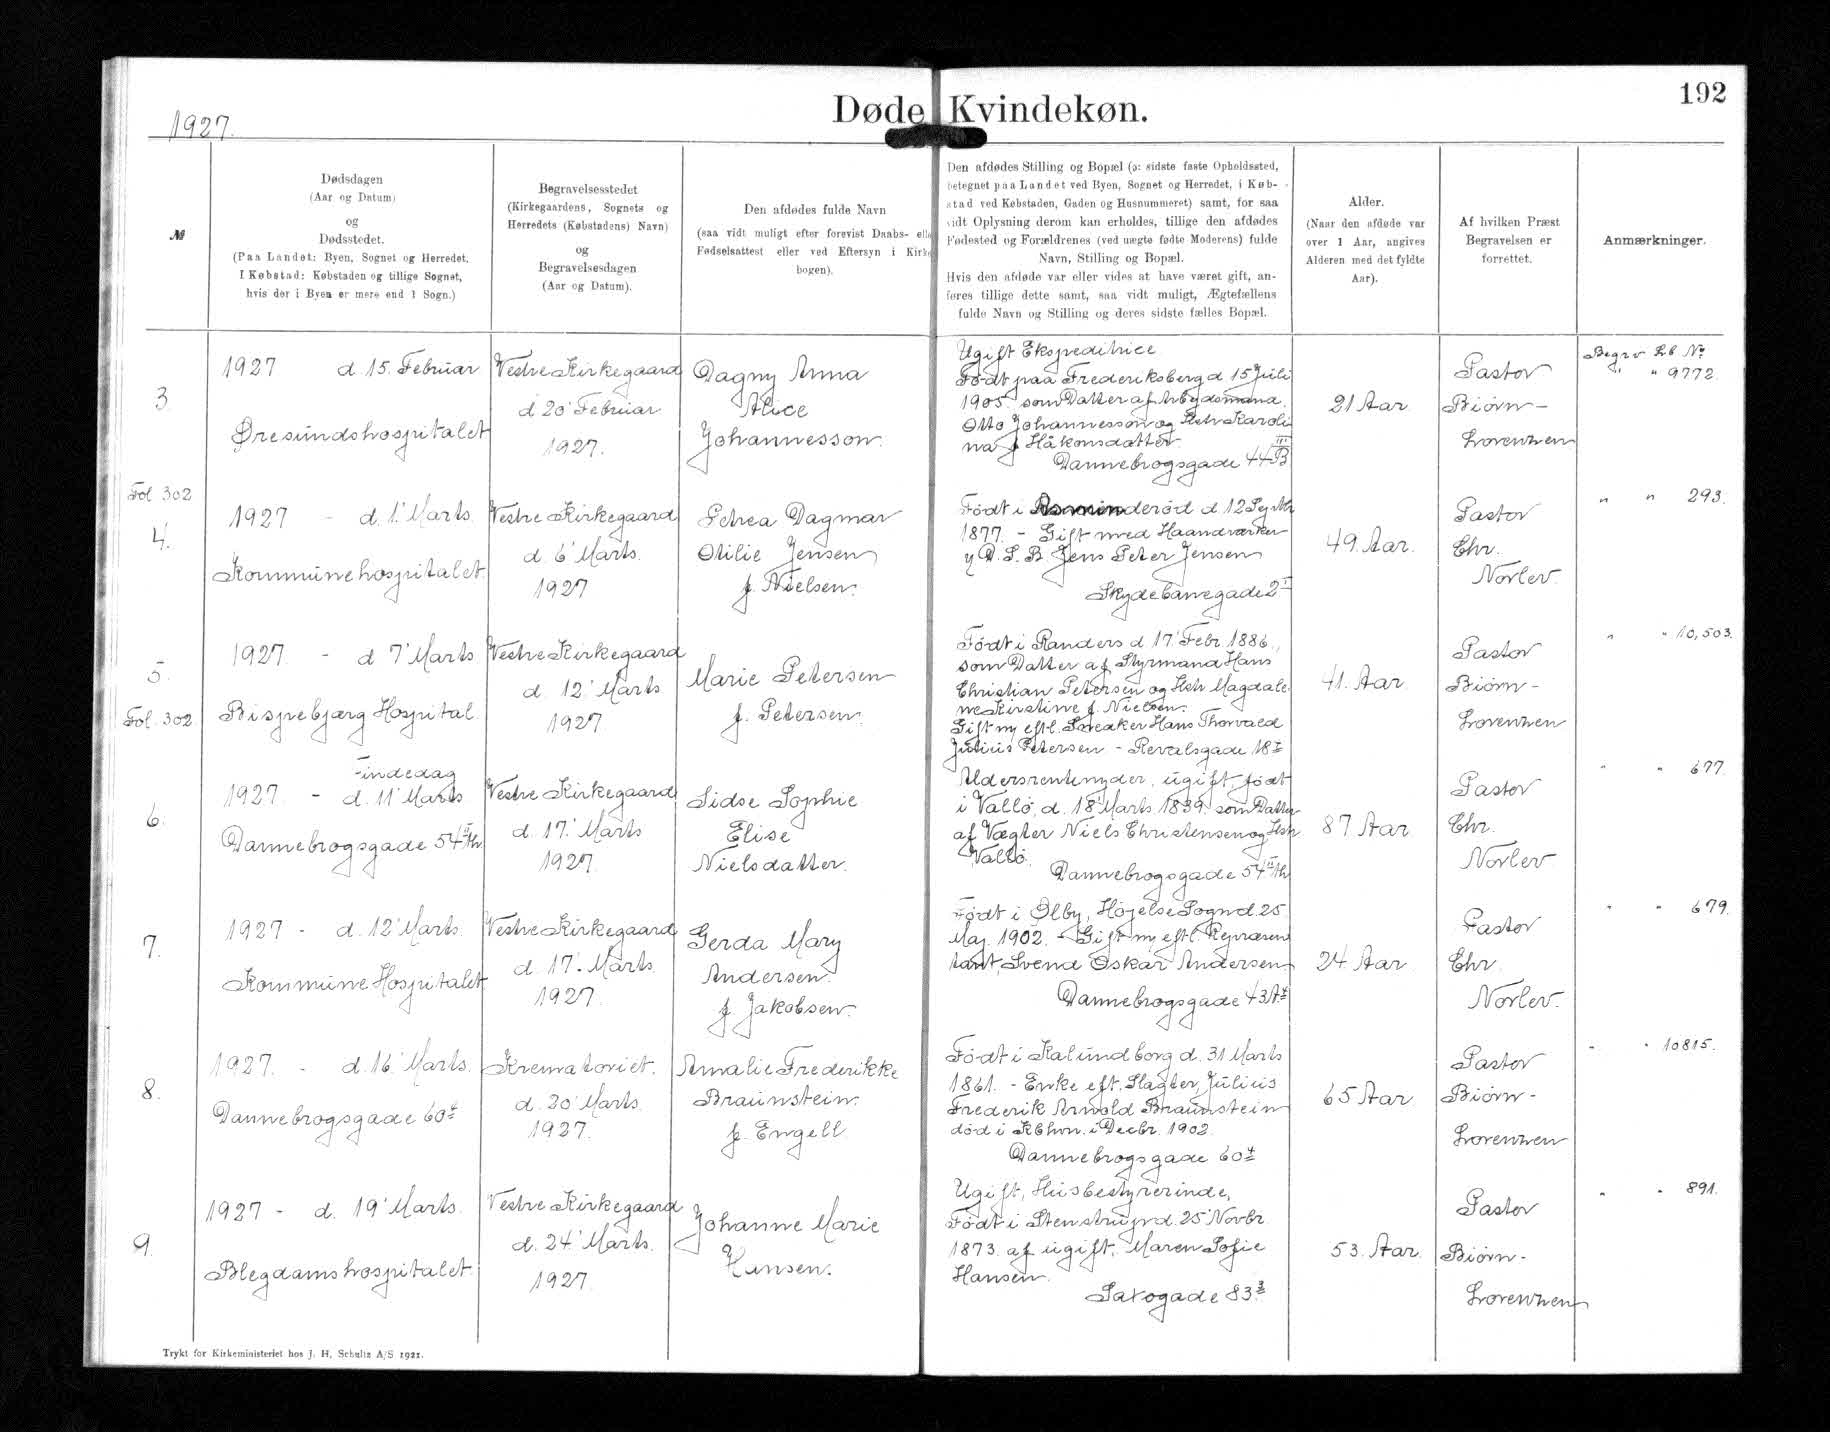 192
Døde Kvindekøn.
1927.
№
Dødsdagen
(Aar og Datum)
og
Dødsstedet.
(Paa Landet: Byen, Sognet og Herredet,
I Købstad: Købstaden og tillige Sognet,
hvis der i Byen er mere end 1 Sogn.)
Begravelsesstedet
(Kirkegaardens, Sognets og
Herredets (Købstadens) Navn)
og
Begravelsesdagen
(Aar og Datum).
Den afdødes fulde Navn
(saa vidt muligt efter forevist Daabs- elle
Fødselsattest eller ved Eftersyn i Kirke
bogen).
Den afdødes Stilling og Bopæl (ɔ: sidste faste Opholdssted,
betegnet paa Landet ved Byen, Sognet og Herredet, i Køb-
stad ved Købstaden, Gaden og Husnummeret) samt, for saa
vidt Oplysning derom kan erholdes, tillige den afdødes
Fødested og Forældrenes (ved uægte fødte Moderens) fulde
Navn, Stilling og Bopæl.
Hvis den afdøde var eller vides at have været gift, an-
føres tillige dette samt, saa vidt muligt, Ægtefællens
fulde Navn og Stilling og deres sidste fælles Bopæl.
Alder.
(Naar den afdøde var
over 1 Aar, angives
Alderen med det fyldte
Aar).
Af hvilken Præst
Begravelsen er
forrettet.
Anmærkninger.
3.
1927 d. 15. Februar
Øresundshospitalet
Vestre Kirkegaard
d 20' Februar
1927.
Dagny Anna
Alice
Johannesson.
Ugift Ekspeditrice.
Født paa Frederiksberg d 15 Juli
1905. som Datter af Arbejdsmand
Otto Johannesson og Hstr Karoli
na f Håkonsdatter.
Dannebrogsgade 44 III B
21 Aar
Pastor
Biörn-
Lorenzen
Begrv Lb No
" " 9772.
Fol 302
4.
1927 - d. 1.' Marts.
Kommunehospitalet.
Vestre Kirkegaard
d. 6' Marts.
1927
Petrea Dagmar
Otilie Jensen
f. Nielsen.
Født i Asminderød d 12 Septbr
1877. - Gift med Haandværker
v D. S. B. Jens Peter Jensen
Skydebanegade 2 I
49. Aar.
Pastor
Chr.
Norlev.
" " 293.
5.
Fol. 302
1927. - d 7' Marts
Bispebjærg Hospital.
Vestre Kirkegaard
d. 12' Marts
1927.
Marie Petersen
f. Petersen.
Født i Randers d 17' Febr. 1886.,
som Datter af Styrmand Hans
Christian Petersen og Hstr Magdale
ne Kirstine f. Nielsen.
Gift m eftl. Snedker Hans Thorvald
Julius Petersen - Revalsgade 18
41. Aar.
Pastor
Biörn-
Lorenzen
" " 10,503.
6.
Findedag
1927. - d. 11' Marts.
Dannebrogsgade 54 II th.
Vestre Kirkegaard
d. 17.' Marts
1927.
Sidse Sophie
Elise
Nielsdatter.
Aldersrentenyder, ugift, født
i Vallö, d. 18' Marts 1839. som Datter
af Vægter Niels Christensen og Hstr
Vallö.
Dannebrogsgade 54 II th
87 Aar
Pastor
Chr.
Norlev
" " 677.
7.
1927 - d. 12' Marts.
Kommune Hospitalet
Vestre Kirkegaard
d. 17'. Marts.
1927.
Gerda Mary
Andersen.
f Jakobsen.
Født i Ølby, Højelse Sogn d. 25.
Maj. 1902. - Gift m eftl. Repræsen
tant, Svend Oskar Andersen.
Dannebrogsgade 43 A
24 Aar
Pastor
Chr.
Norlev.
" " 679.
8.
1927. - d. 16.' Marts.
Dannebrogsgade 60
Krematoriet.
d. 20' Marts.
1927.
Amalie Frederikke
Braunstein.
f. Engell.
Født i Kalundborg d. 31 Marts
1861. - Enke eft. Slagter, Julius
Frederik Arnold Braunstein
død i Kbhvn. i Decbr. 1902.
Dannebrogsgade 60
65 Aar
Pastor
Biörn-
Lorenzen
" " 10815.
9.
1927 - d. 19' Marts.
Blegdamshospitalet.
Vestre Kirkegaard
d. 24.' Marts.
1927.
Johanne Marie
Hansen.
Ugift, Husbestyrerinde,
Født i Stenstrup d. 25' Novbr.
1873. af ugift. Maren Sofie
Hansen.
Saxogade 83
53. Aar.
Pastor
Biörn-
Lorenzen
" " 891.
Trykt for Kirkeministeriet hos J. H. Schultz A/S 1921.